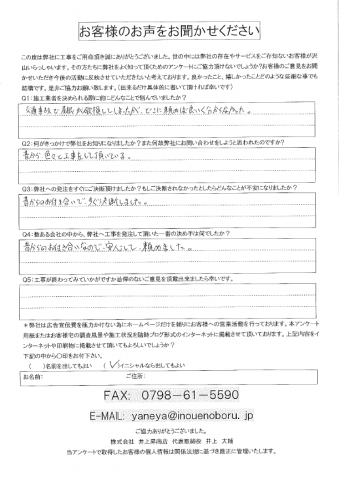 お客様のお声をお聞かせください
この度は弊社に工事をご用命頂き誠にありがとうございました。世の中には弊社の存在やサービスをご存知ないお客様が沢
山いらっしゃいます。その方たちに弊社をよく知って頂くためのアンケートにご協力頂けないでしょうか？お客様のご意見をお聞
かせいただき今後の活動に反映させていただきたいと考えております。良かったこと、嬉しかったことどのような些細な事でも
結構です。是非ご協力お願い致します。（出来るだけ具体的に書いて頂ければ幸いです）
Q1：施工業者を決められる際に何にどんなことで悩んでいましたか？
しましたが、どこに頼めば良いか分からなかった。
Q2：何がきっかけで弊社をお知りになりましたか？また何故弊社にお問い合わせをしようと思われたのですか？
昔から 色々と工事をして頂いている。
Q3：弊社への発注をすぐにご決断頂けましたか？もしご決断されなかったとしたらどんなことが不安になりましたか？
昔からのお付き合いで、すぐ決断しました。
Q4：数ある会社の中から、弊社へ工事を発注して頂いた一番の決め手は何でしたか？
昔からのお付き合いなので、安心して 頼めました。
Q5：工事が終わってみていかがですか忌憚のないご意見を頂戴出来ましたら幸いです。
＊弊社は広告宣伝費を極力かけない為にホームページだけを頼りにお客様への営業活動を行っております。本アンケート
用紙またはお客様宅の調査風景や施工状況を随時ブログ形式のインターネットに掲載させて頂いております。上記内容をイ
ンターネットや印刷物に掲載させて頂いてもよろしいでしょうか？
下記の中から〇印をお付下さい。
（　）名前を出してもよい （✓）イニシャルなら出してもよい
お名前： ご住所：
FAX: 0798-61-5590
E-MAIL: yaneya@inouenoboru.jp
ご協力ありがとうございました。
株式会社 井上昇商店 代表取締役 井上 大輔
当アンケートで取得したお客様の個人情報は関係法規に基づき厳正に管理いたします。